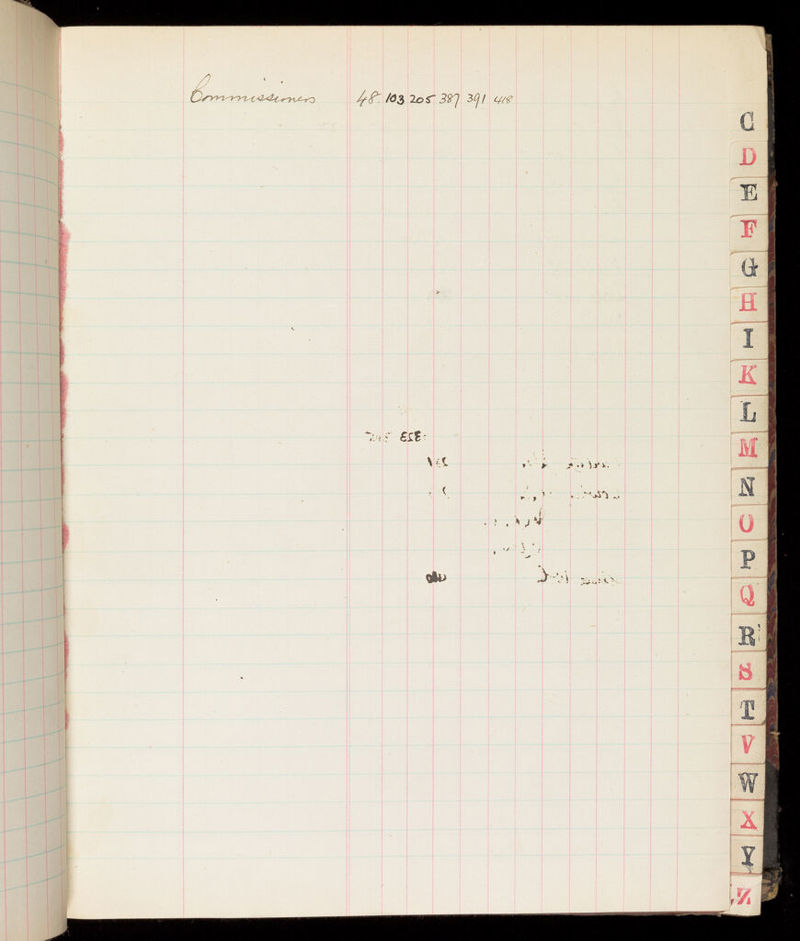 Commissioners 48. 103 205 387 391 418
C
D
E
F
G
H
I
K
L
M
N
O
P
Q
R
S
T
V
W
X
Y
Z
323